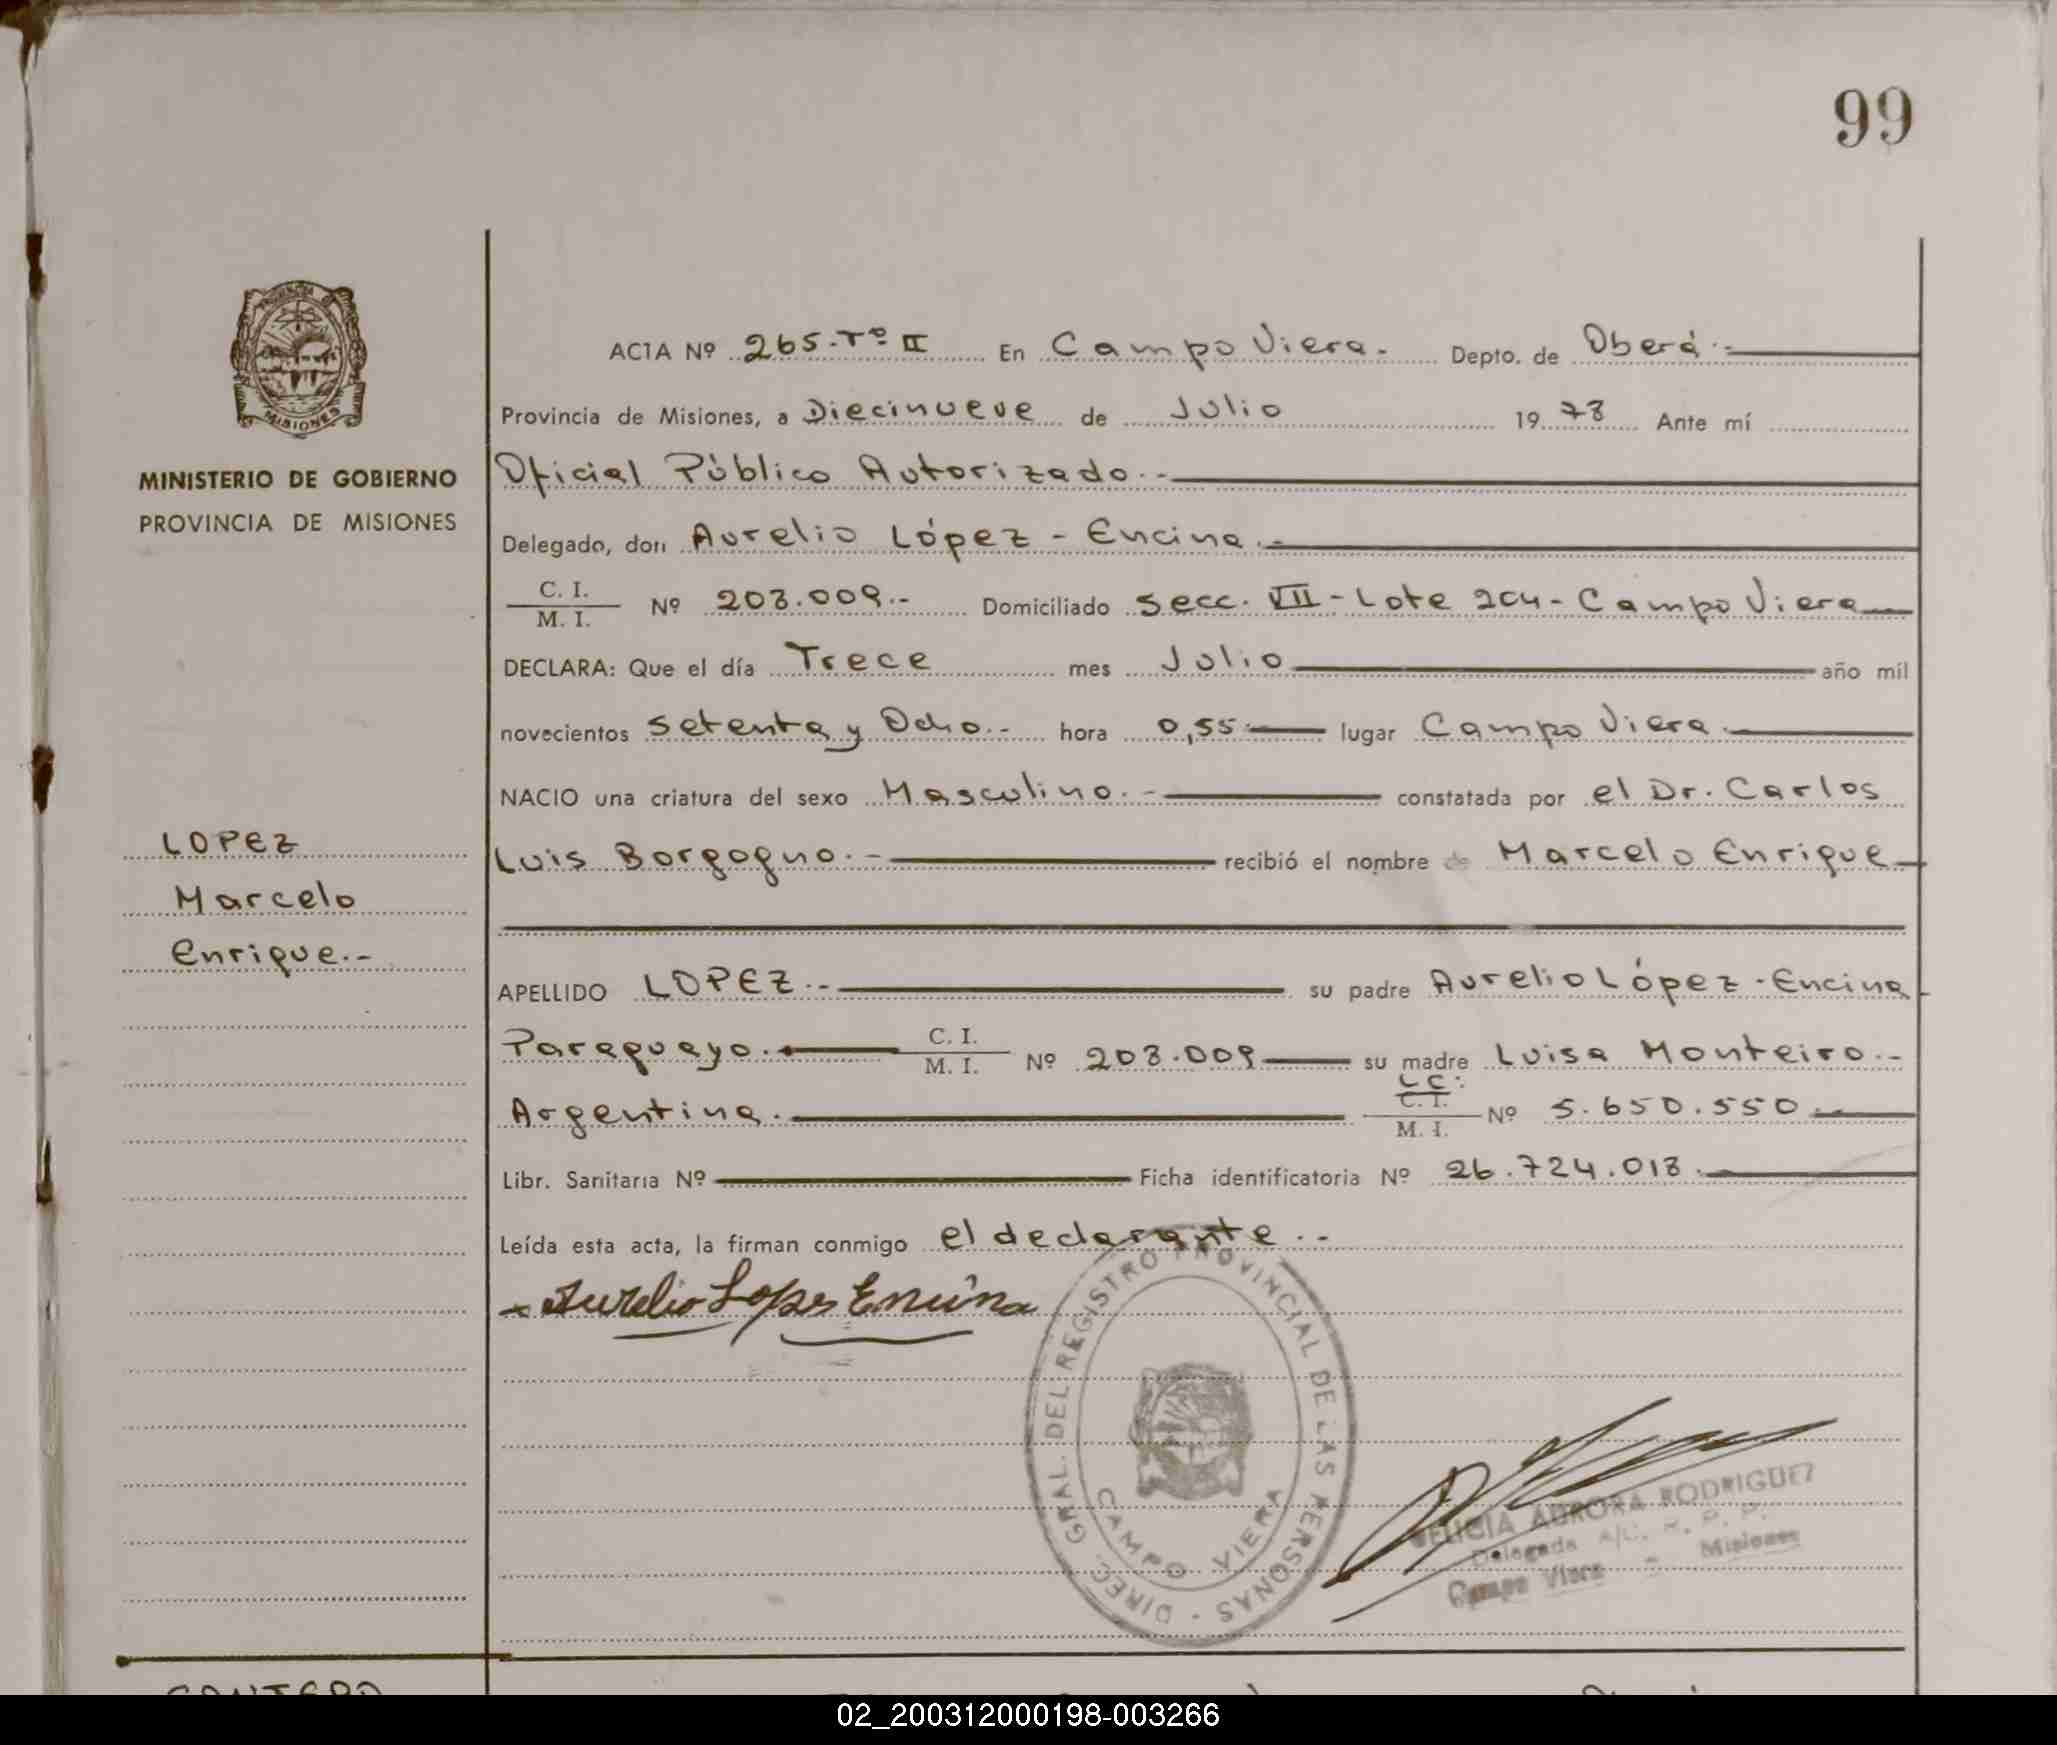 99
PROVINCIA DE
MISIONES
MINISTERIO DE GOBIERNO
PROVINCIA DE MISIONES
LOPEZ
Marcelo
Enrique.-
ACTA Nº 265-Tº II En Campo Viera.- Depto. de Oberá.-
Provincia de Misiones, a Diecinueve de Julio 1978 Ante mí
Oficial Público Autorizado.-
Delegado, don Aurelio López - Encina.-
C. I.
M. I. Nº 208.009.- Domiciliado Secc. VII - Lote 204 - Campo Viera
DECLARA: Que el día Trece mes Julio año mil
novecientos Setenta y Ocho.- hora 0,55 lugar Campo Viera.
NACIO una criatura del sexo Masculino.- constatada por el Dr. Carlos
Luis Borgogno.- recibió el nombre de Marcelo Enrique
APELLIDO LOPEZ.- su padre Aurelio López - Encina
Paraguayo. C. I.
M. I. Nº 208.009 su madre Luisa Monteiro.-
Argentina. L C:
C. I.
M. I. Nº 5.650.550.-
Libr. Sanitaria Nº Ficha identificatoria Nº 26.724.018.
Leída esta acta, la firman conmigo el declarante.-
Aurelio Lopes Encina
DIREC. GRAL. DEL REGISTRO PROVINCIAL DE LAS PERSONAS
CAMPO VIERA
AURORA RODRIGUEZ
Delegada A/C. R. P. P.
Campo Viera - Misiones
02_200312000198-003266